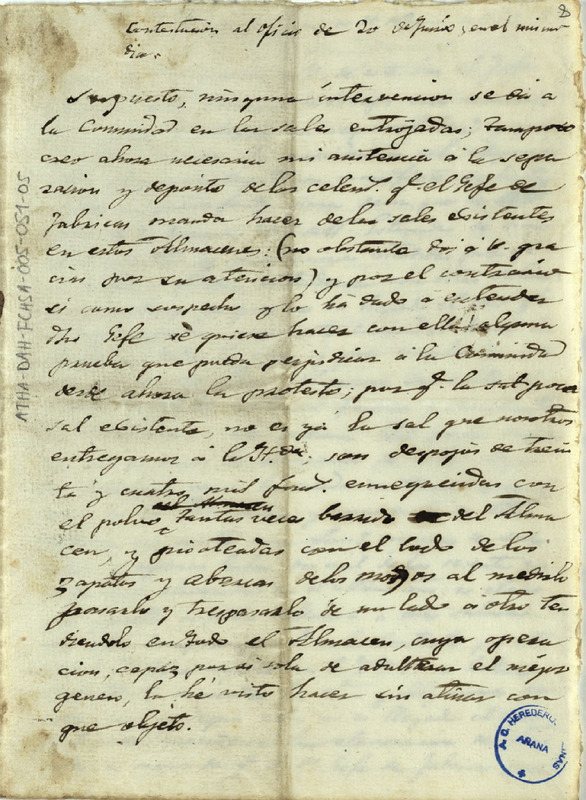 8
Contestacion al oficio de 20 de Junio, en el mismo
dia.
Supuesto, ninguna intervencion se da a
la Comunidad en las sales entrojadas; tampoco
creo ahora necesaria mi asistencia á la sepa
racion y deposito de los celem.s q.e el Gefe de
Fabricas manda hacer de las sales existentes
en estos Almacenes: (no obstante doi á V. gra
cias por su atencion) y por el contrario
si como sospecho y lo há dado á entender
dho Gefe se quiere hacer con ellas alguna
prueba que pueda perjudicar á la Comunidad
desde ahora la protesto; por q.e la sal poca
sal existente, no es yá la sal que nosotros
entregamos á la H.da; son despojos de trein
ta y cuatro mil fan.s ennegrecidas con
el polvo tantas veces barrido del Alma
cen, y pisoteadas con el lodo de los
zapatos y abarcas de los mozos al medirlo
pesarlo y traspasarlo de un lado á otro ten
diendolo en todo el Almacen, cuya opera
cion, capaz por si sola de adulterar el mejor
genero, la hé visto hacer sin atinar con
que objeto.
ATHA-DAH-FCHSA-005-051-05
A. D. HEREDEROS
ARANA